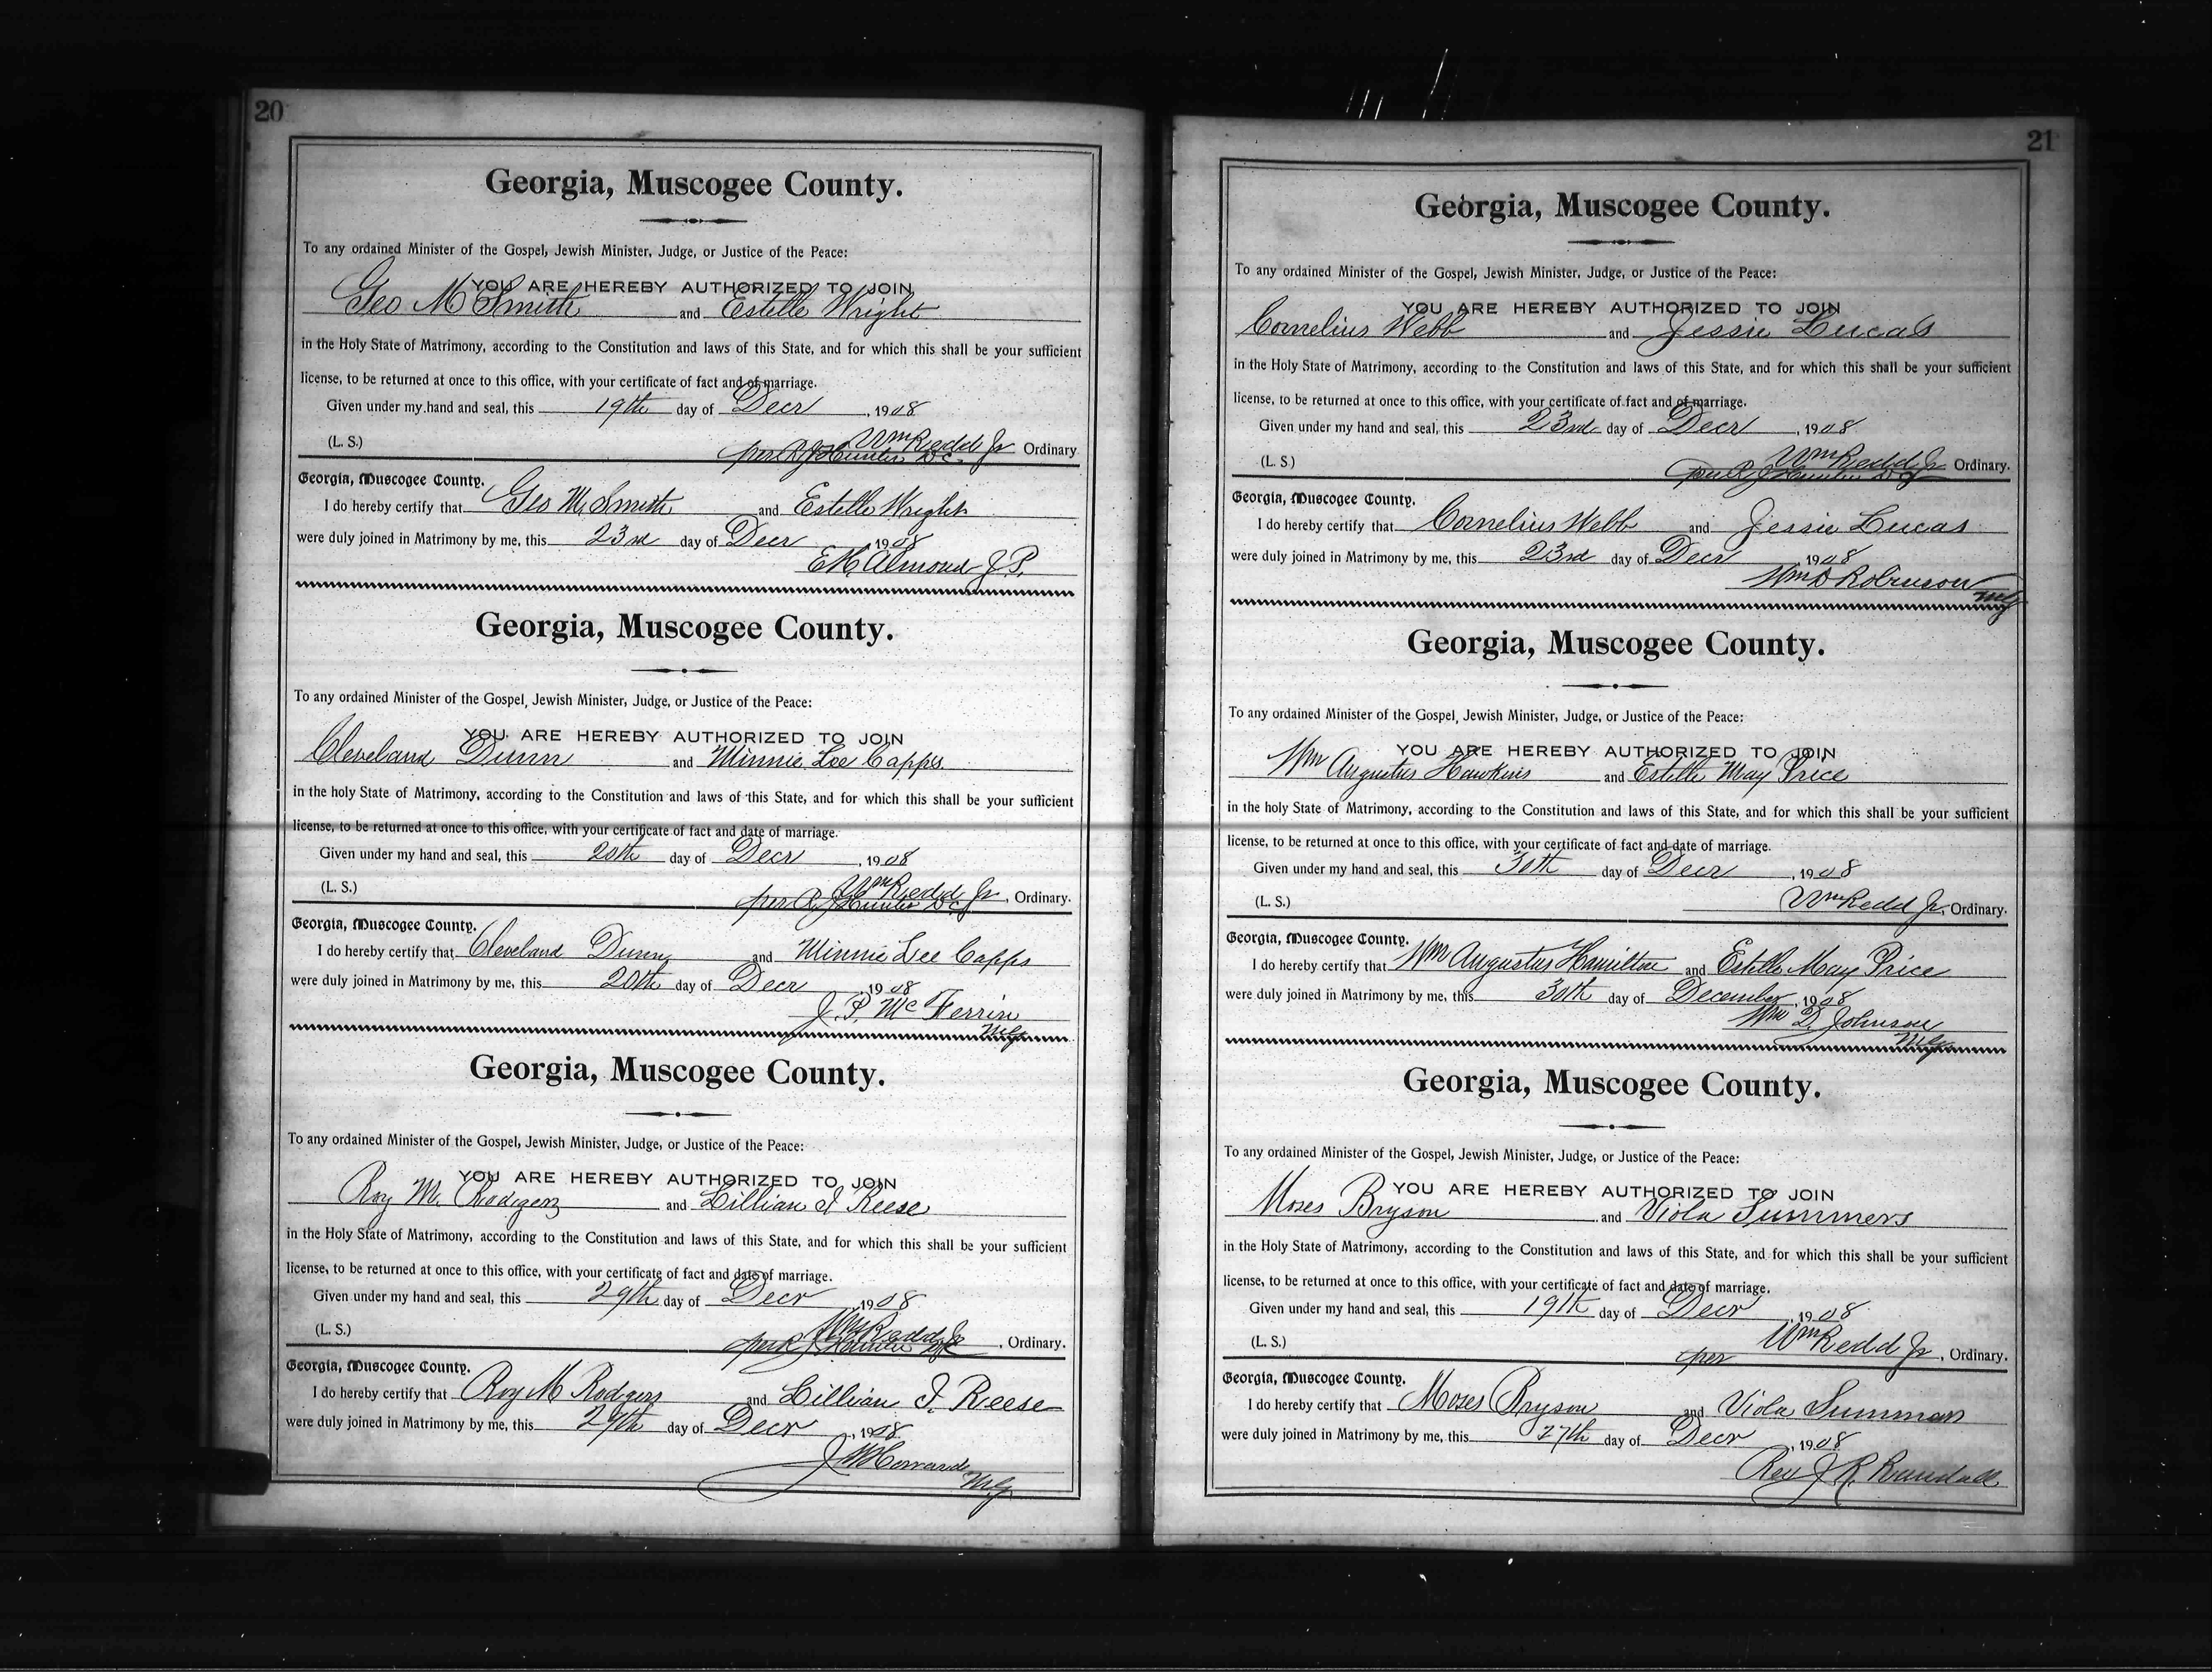 20
Georgia, Muscogee County.
To any ordained Minister of the Gospel, Jewish Minister, Judge, or Justice of the Peace:
YOU ARE HEREBY AUTHORIZED TO JOIN
Geo M Smith and Estelle Wright
in the Holy State of Matrimony, according to the Constitution and laws of this State, and for which this shall be your sufficient
license, to be returned at once to this office, with your certificate of fact and of marriage.
Given under my hand and seal, this 19th day of Decr , 1908
(L. S.) Wm Redd Jr Ordinary
per R J Hunter D.C.
Georgia, Muscogee County.
I do hereby certify that Geo M. Smith and Estelle Wright
were duly joined in Matrimony by me, this 23rd day of Decr 1908
E H Almond J.P.
Georgia, Muscogee County.
To any ordained Minister of the Gospel, Jewish Minister, Judge, or Justice of the Peace:
YOU ARE HEREBY AUTHORIZED TO JOIN
Cleveland Dunn and Minnie Lee Capps
in the holy State of Matrimony, according to the Constitution and laws of this State, and for which this shall be your sufficient
license, to be returned at once to this office, with your certificate of fact and date of marriage.
Given under my hand and seal, this 20th day of Decr , 1908
(L. S.) Wm Redd Jr , Ordinary.
per R J Hunter D C
Georgia, Muscogee County.
I do hereby certify that Cleveland Dunn and Minnie Lee Capps
were duly joined in Matrimony by me, this 20th day of Decr , 1908
J. P. McFerrin
M.G.
Georgia, Muscogee County.
To any ordained Minister of the Gospel, Jewish Minister, Judge, or Justice of the Peace:
YOU ARE HEREBY AUTHORIZED TO JOIN
Roy M. Rodgers and Lillian I Reese
in the Holy State of Matrimony, according to the Constitution and laws of this State, and for which this shall be your sufficient
license, to be returned at once to this office, with your certificate of fact and date of marriage.
Given under my hand and seal, this 29th day of Decr , 1908
(L. S.) Wm Redd Jr , Ordinary.
per R J Hunter D C
Georgia, Muscogee County.
I do hereby certify that Roy M Rodgers and Lillian I. Reese
were duly joined in Matrimony by me, this 29th day of Decr , 1908
J W Howard
M.G.
21
Georgia, Muscogee County.
To any ordained Minister of the Gospel, Jewish Minister, Judge, or Justice of the Peace:
YOU ARE HEREBY AUTHORIZED TO JOIN
Cornelius Webb and Jessie Lucas
in the Holy State of Matrimony, according to the Constitution and laws of this State, and for which this shall be your sufficient
license, to be returned at once to this office, with your certificate of fact and of marriage.
Given under my hand and seal, this 23rd day of Decr , 1908
(L. S.) Wm Redd Jr Ordinary.
per R J Hunter D C
Georgia, Muscogee County.
I do hereby certify that Cornelius Webb and Jessie Lucas
were duly joined in Matrimony by me, this 23rd day of Decr 1908
Wm D Robinson
M.G.
Georgia, Muscogee County.
To any ordained Minister of the Gospel, Jewish Minister, Judge, or Justice of the Peace:
YOU ARE HEREBY AUTHORIZED TO JOIN
Wm Augustus Hawkins and Estelle May Price
in the holy State of Matrimony, according to the Constitution and laws of this State, and for which this shall be your sufficient
license, to be returned at once to this office, with your certificate of fact and date of marriage.
Given under my hand and seal, this 30th day of Decr , 1908
(L. S.) Wm Redd Jr, Ordinary.
Georgia, Muscogee County.
I do hereby certify that Wm Augustus Hamilton and Estelle May Price
were duly joined in Matrimony by me, this 30th day of December , 1908
Wm D. Johnson
M.G.
Georgia, Muscogee County.
To any ordained Minister of the Gospel, Jewish Minister, Judge, or Justice of the Peace:
YOU ARE HEREBY AUTHORIZED TO JOIN
Moses Bryson and Viola Summers
in the Holy State of Matrimony, according to the Constitution and laws of this State, and for which this shall be your sufficient
license, to be returned at once to this office, with your certificate of fact and date of marriage.
Given under my hand and seal, this 19th day of Decr , 1908
(L. S.) per Wm Redd Jr , Ordinary.
Georgia, Muscogee County.
I do hereby certify that Moses Bryson and Viola Summers
were duly joined in Matrimony by me, this 27th day of Decr , 1908
Rev J. R. Randall